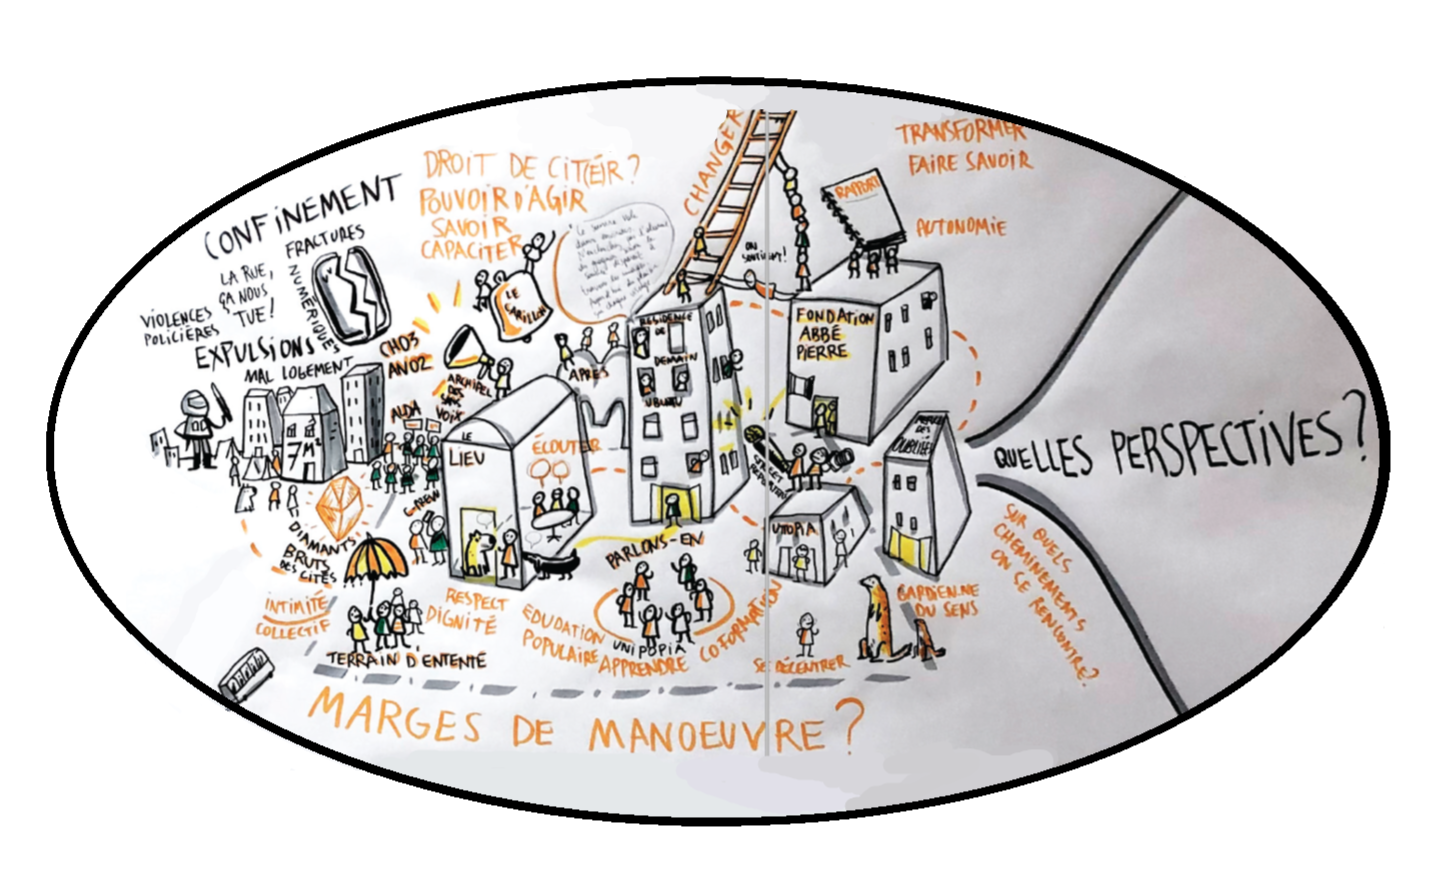 CONFINEMENT
FRACTURES
NUMÉRIQUES
LA RUE,
ÇA NOUS
TUE!
VIOLENCES
POLICIÈRES
EXPULSIONS
MAL LOGEMENT
7M²
DROIT DE CIT(É)R ?
POUVOIR D'AGIR
SAVOIR
CAPACITER
LE
CARILLON
CHO3
ANO2
ARCHIPEL
DES
SANS
VOIX
ALDA
DIAMANTS
BRUTS
DES CITÉS
INTIMITÉ
COLLECTIF
TERRAIN D'ENTENTE
LE
LIEU
ÉCOUTER
RESPECT
DIGNITÉ
APRÈS
CHANGER
RÉSIDENCE
DE
DEMAIN
UBUNTU
ON
FONDATION
ABBÉ
PIERRE
RAPPORT
TRANSFORMER
FAIRE SAVOIR
AUTONOMIE
UTOPIA
DES
OUBLIÉS
PARLONS-EN
EDUDATION
POPULAIRE
UNIPOPIA
APPRENDRE
COFORMATION
SE DÉCENTRER
GARDIEN.NE
DU SENS
MARGES DE MANOEUVRE ?
QUELLES PERSPECTIVES ?
SUR QUELS
CHEMINEMENTS
ON SE RENCONTRE?